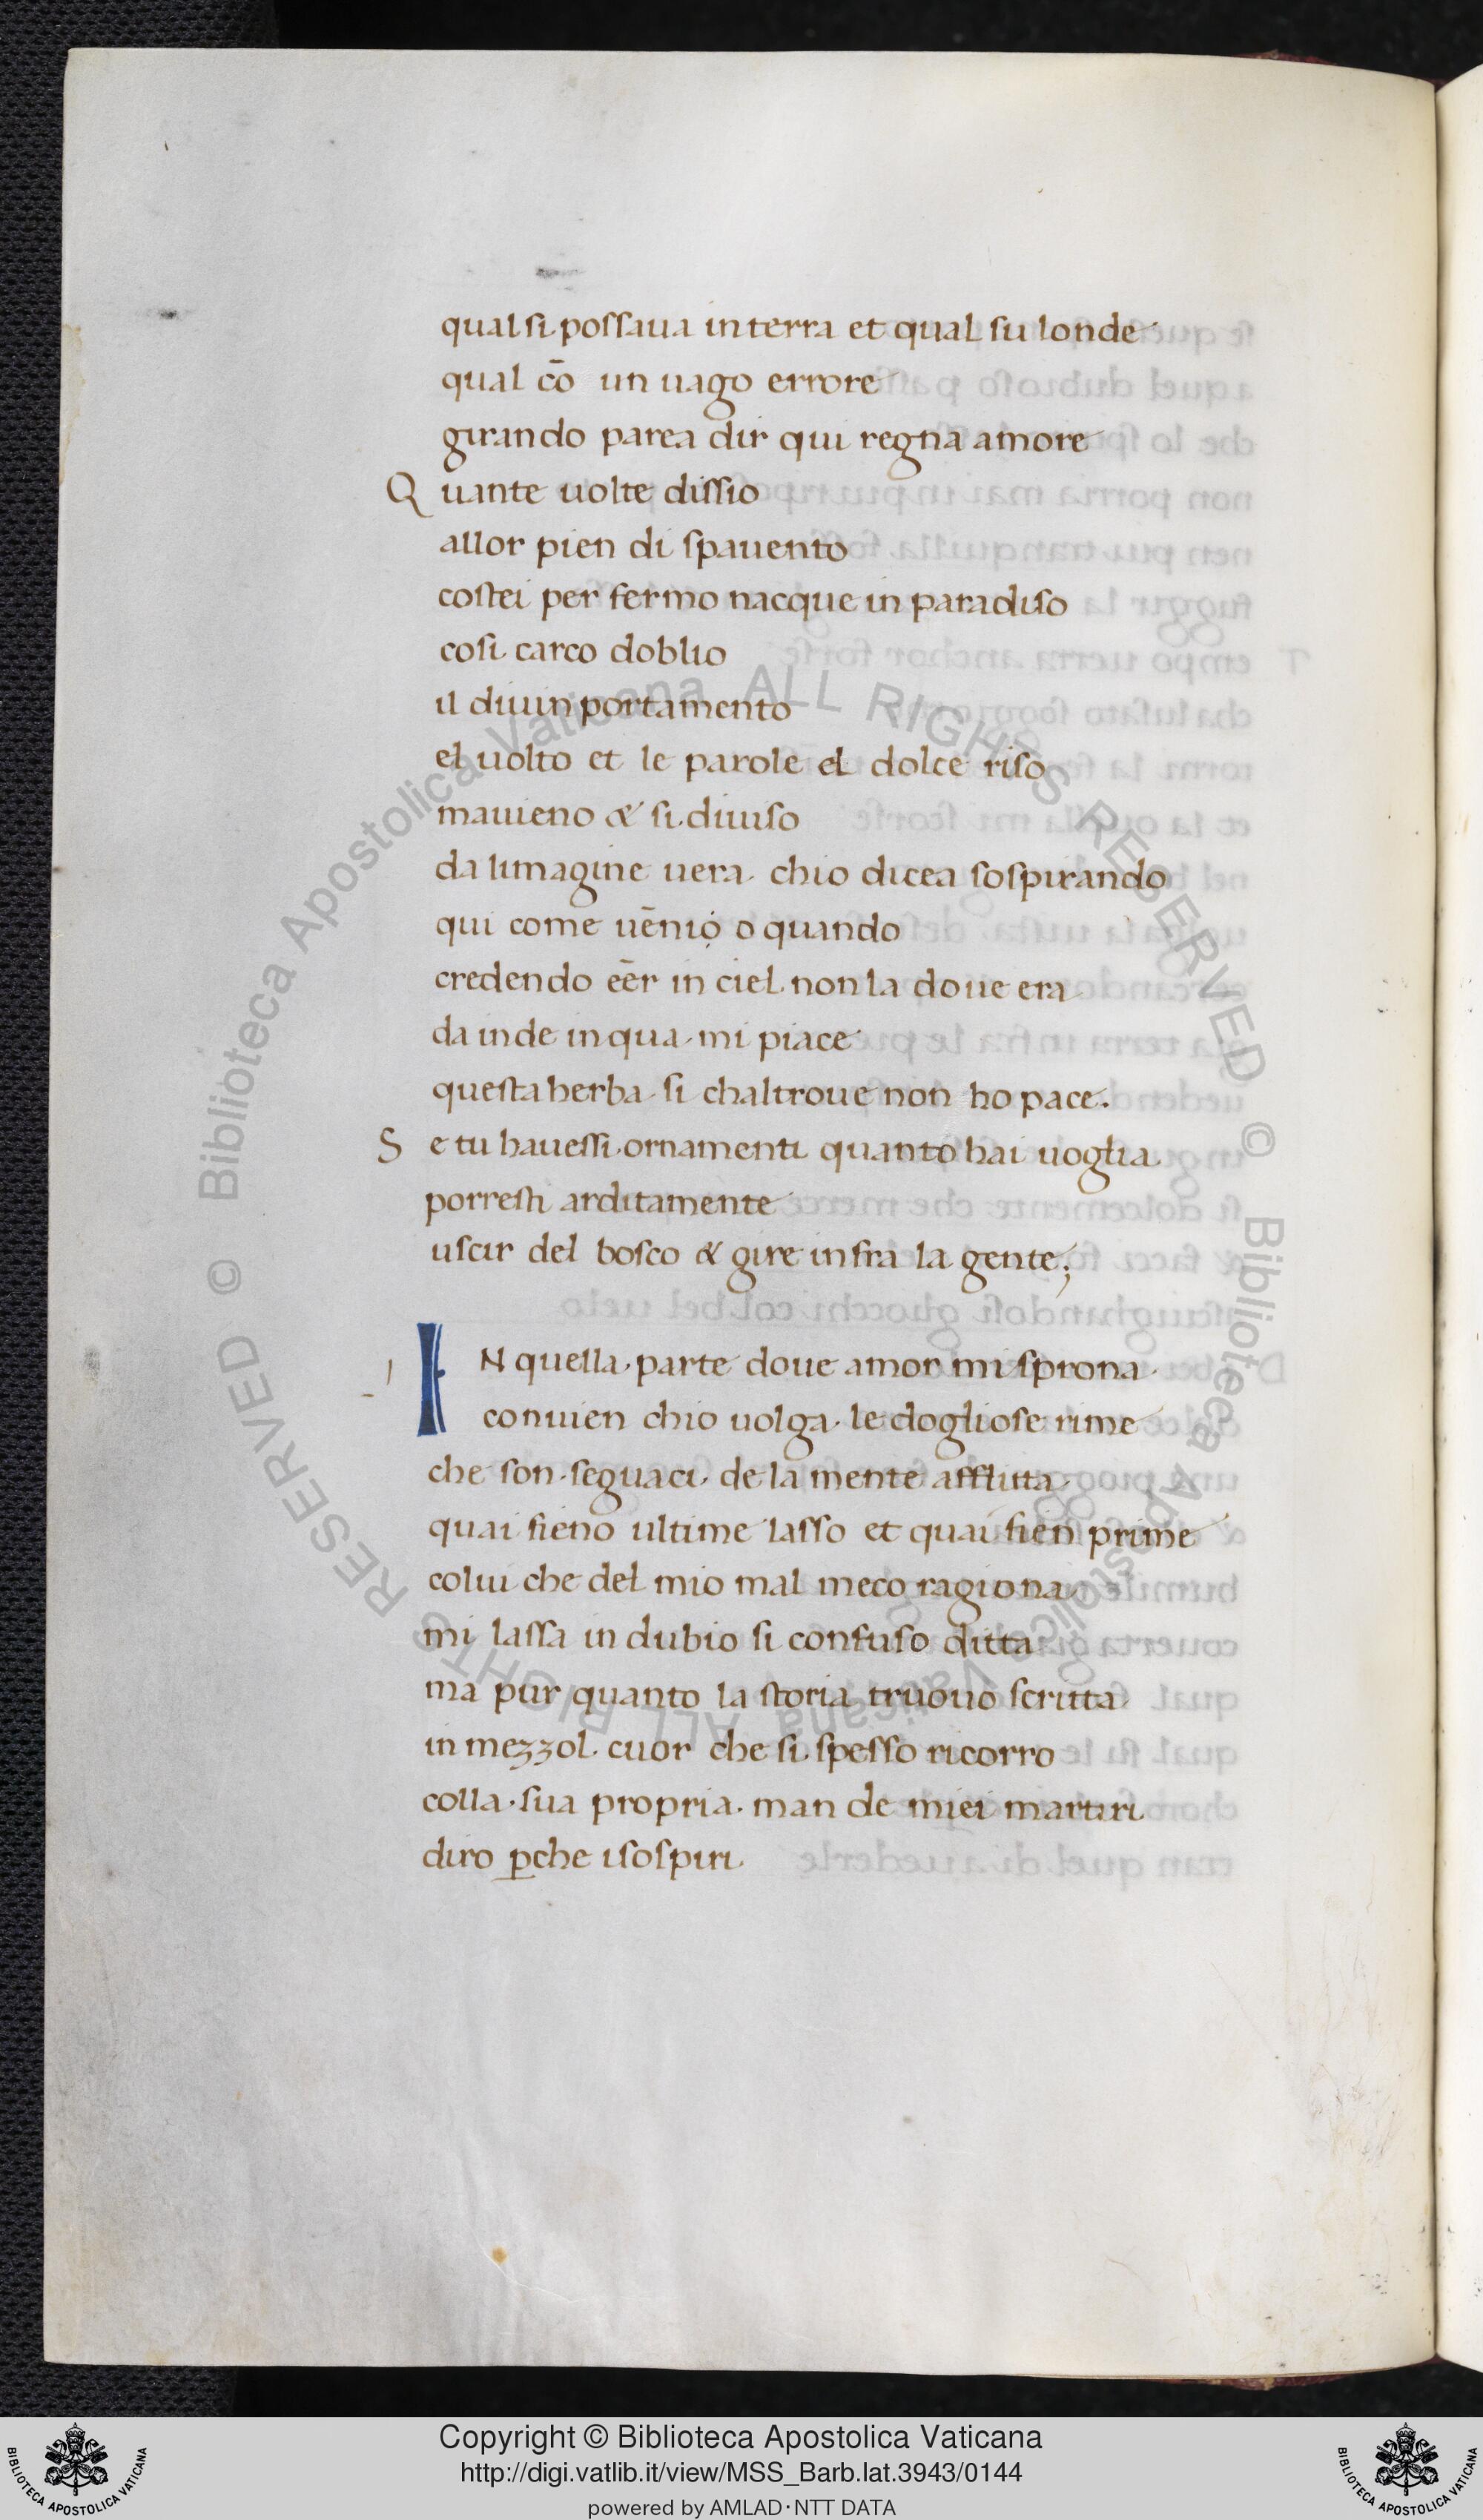 qual si possaua in terra et qual su londe
qual cō un uago errore
girando parea dir qui regna amore
Quante uolte dissio
allor pien di spauento
costei per fermo nacque in paradiso
cosi carco doblio
il diuin portamento
el uolto et le parole el dolce riso
mauieno & si diuiso
da limagine uera chio dicea sospirando
qui come uēnio o quando
credendo eēr in ciel non la doue era
da inde in qua mi piace
questa herba si chaltroue non ho pace.
Se tu hauessi ornamenti quanto hai uoglia
porresti arditamente
uscir del bosco & gire infra la gente;
IN quella parte doue amor mi sprona
conuien chio uolga le dogliose rime
che son seguaci de la mente afflitta
quai fieno ultime lasso et quai fien prime
colui che del mio mal meco ragiona
mi lassa in dubio si confuso ditta
ma pur quanto la storia truouo scritta
in mezzol cuor che si spesso ricorro
colla sua propria man de miei martiri
diro ꝑche i sospiri
Biblioteca Apostolica Vaticana ALL RIGHTS RESERVED © Biblioteca Apostolica Vaticana ALL RIGHTS RESERVED ©
Copyright © Biblioteca Apostolica Vaticana
http://digi.vatlib.it/view/MSS_Barb.lat.3943/0144
powered by AMLAD·NTT DATA
BIBLIOTECA APOSTOLICA VATICANA
BIBLIOTECA APOSTOLICA VATICANA